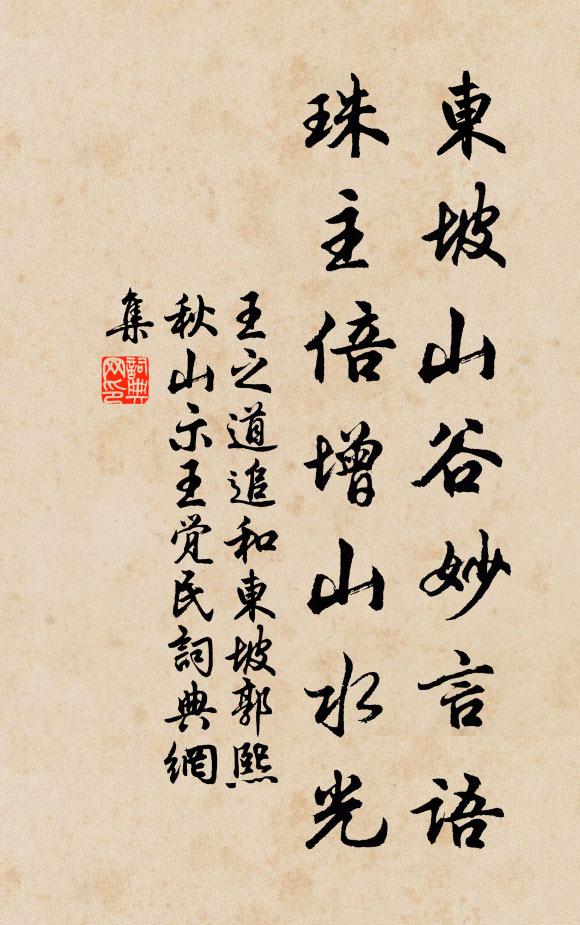 東坡山谷妙言语
珠主倍增山水光
王之道追和東坡郭熙
秋山示王覺民詞典網
集
詞典網印